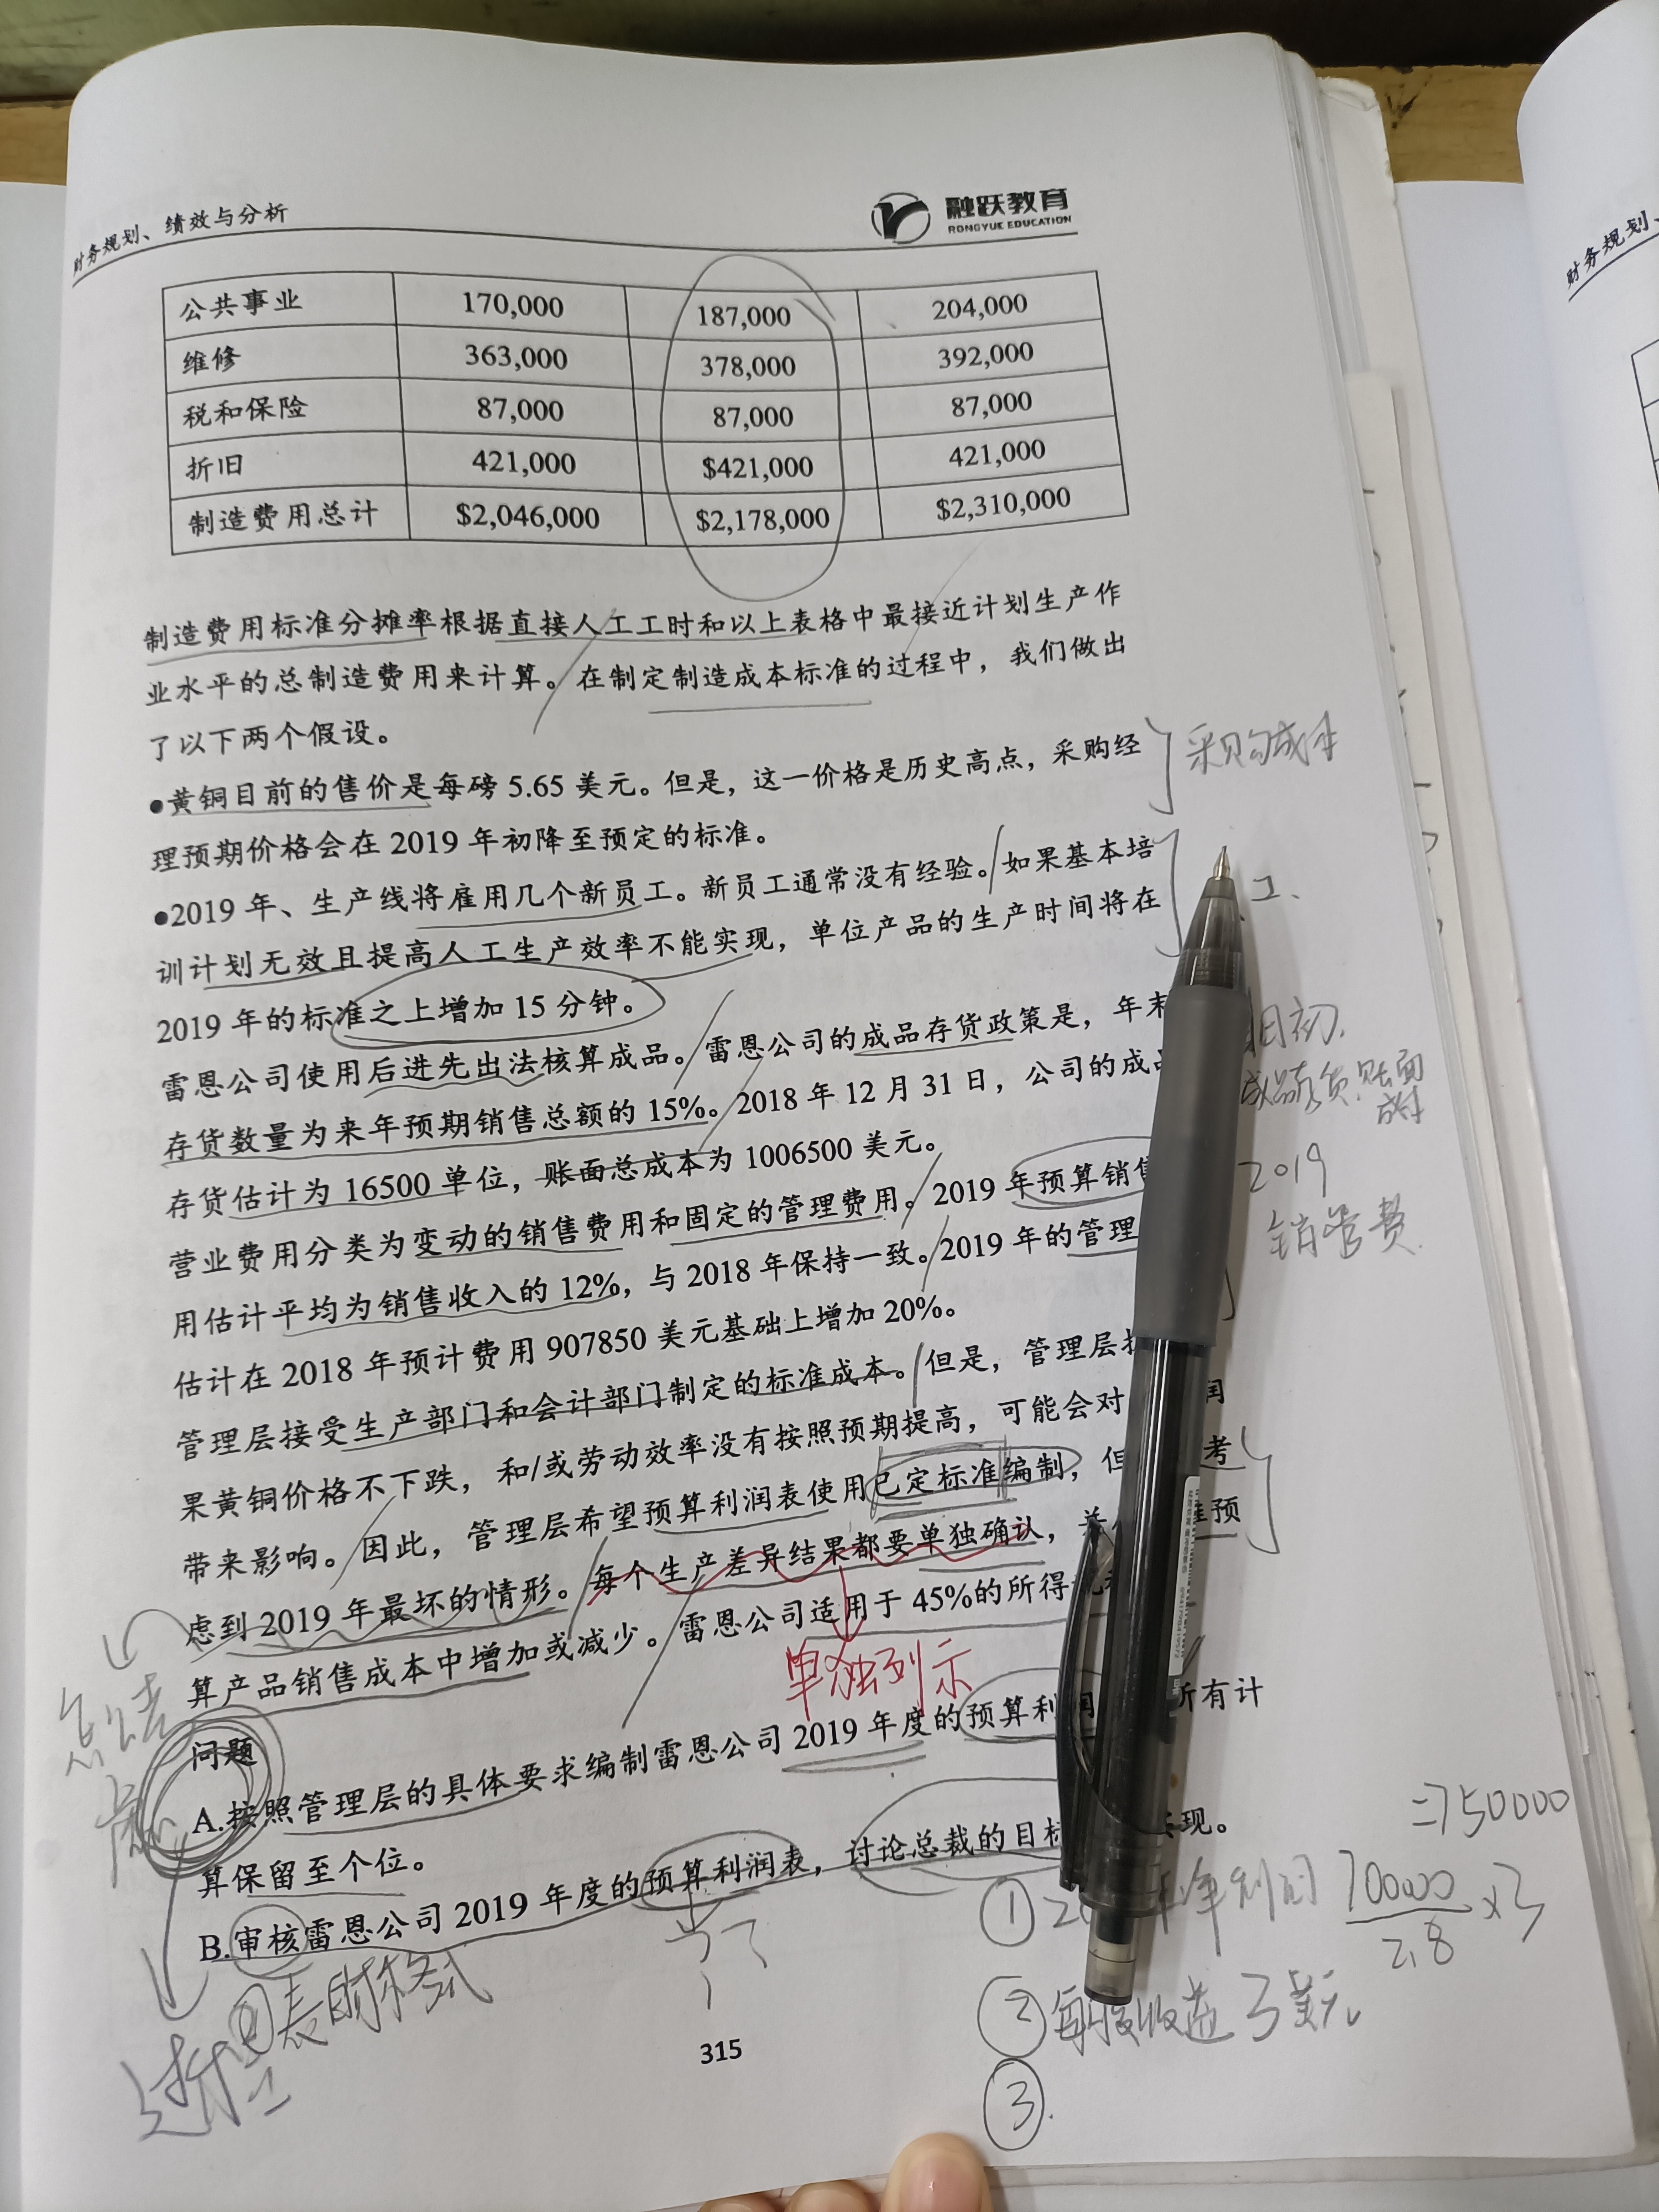 财务规划、绩效与分析
融跃教育
RONGYUE EDUCATION
公共事业 170,000 187,000 204,000
维修 363,000 378,000 392,000
税和保险 87,000 87,000 87,000
折旧 421,000 $421,000 421,000
制造费用总计 $2,046,000 $2,178,000 $2,310,000
制造费用标准分摊率根据直接人工工时和以上表格中最接近计划生产作
业水平的总制造费用来计算。在制定制造成本标准的过程中，我们做出
了以下两个假设。
●黄铜目前的售价是每磅 5.65 美元。但是，这一价格是历史高点，采购经
理预期价格会在 2019 年初降至预定的标准。
采购成本
●2019 年、生产线将雇用几个新员工。新员工通常没有经验。如果基本培
训计划无效且提高人工生产效率不能实现，单位产品的生产时间将在
工、
2019 年的标准之上增加 15 分钟。
雷恩公司使用后进先出法核算成品。雷恩公司的成品存货政策是，年末
期初
存货数量为来年预期销售总额的 15%。2018 年 12 月 31 日，公司的成品
成品存货账面
成本
存货估计为 16500 单位，账面总成本为 1006500 美元。
营业费用分类为变动的销售费用和固定的管理费用。2019 年预算销售
2019
销管费
用估计平均为销售收入的 12%，与 2018 年保持一致。2019 年的管理
估计在 2018 年预计费用 907850 美元基础上增加 20%。
管理层接受生产部门和会计部门制定的标准成本。但是，管理层
润
果黄铜价格不下跌，和/或劳动效率没有按照预期提高，可能会对
带来影响。因此，管理层希望预算利润表使用已定标准编制，但 考
虑到 2019 年最坏的情形。每个生产差异结果都要单独确认， 预
算产品销售成本中增加或减少。雷恩公司适用于 45%的所得
单独列示
问题
A.按照管理层的具体要求编制雷恩公司 2019 年度的预算利润 所有计
算保留至个位。
B.审核雷恩公司 2019 年度的预算利润表，讨论总裁的目标 实现。
=750000
① 20 年净利润 700000/2.8 ×3
② 每股收益 3 美元
③.
②表的格式
315